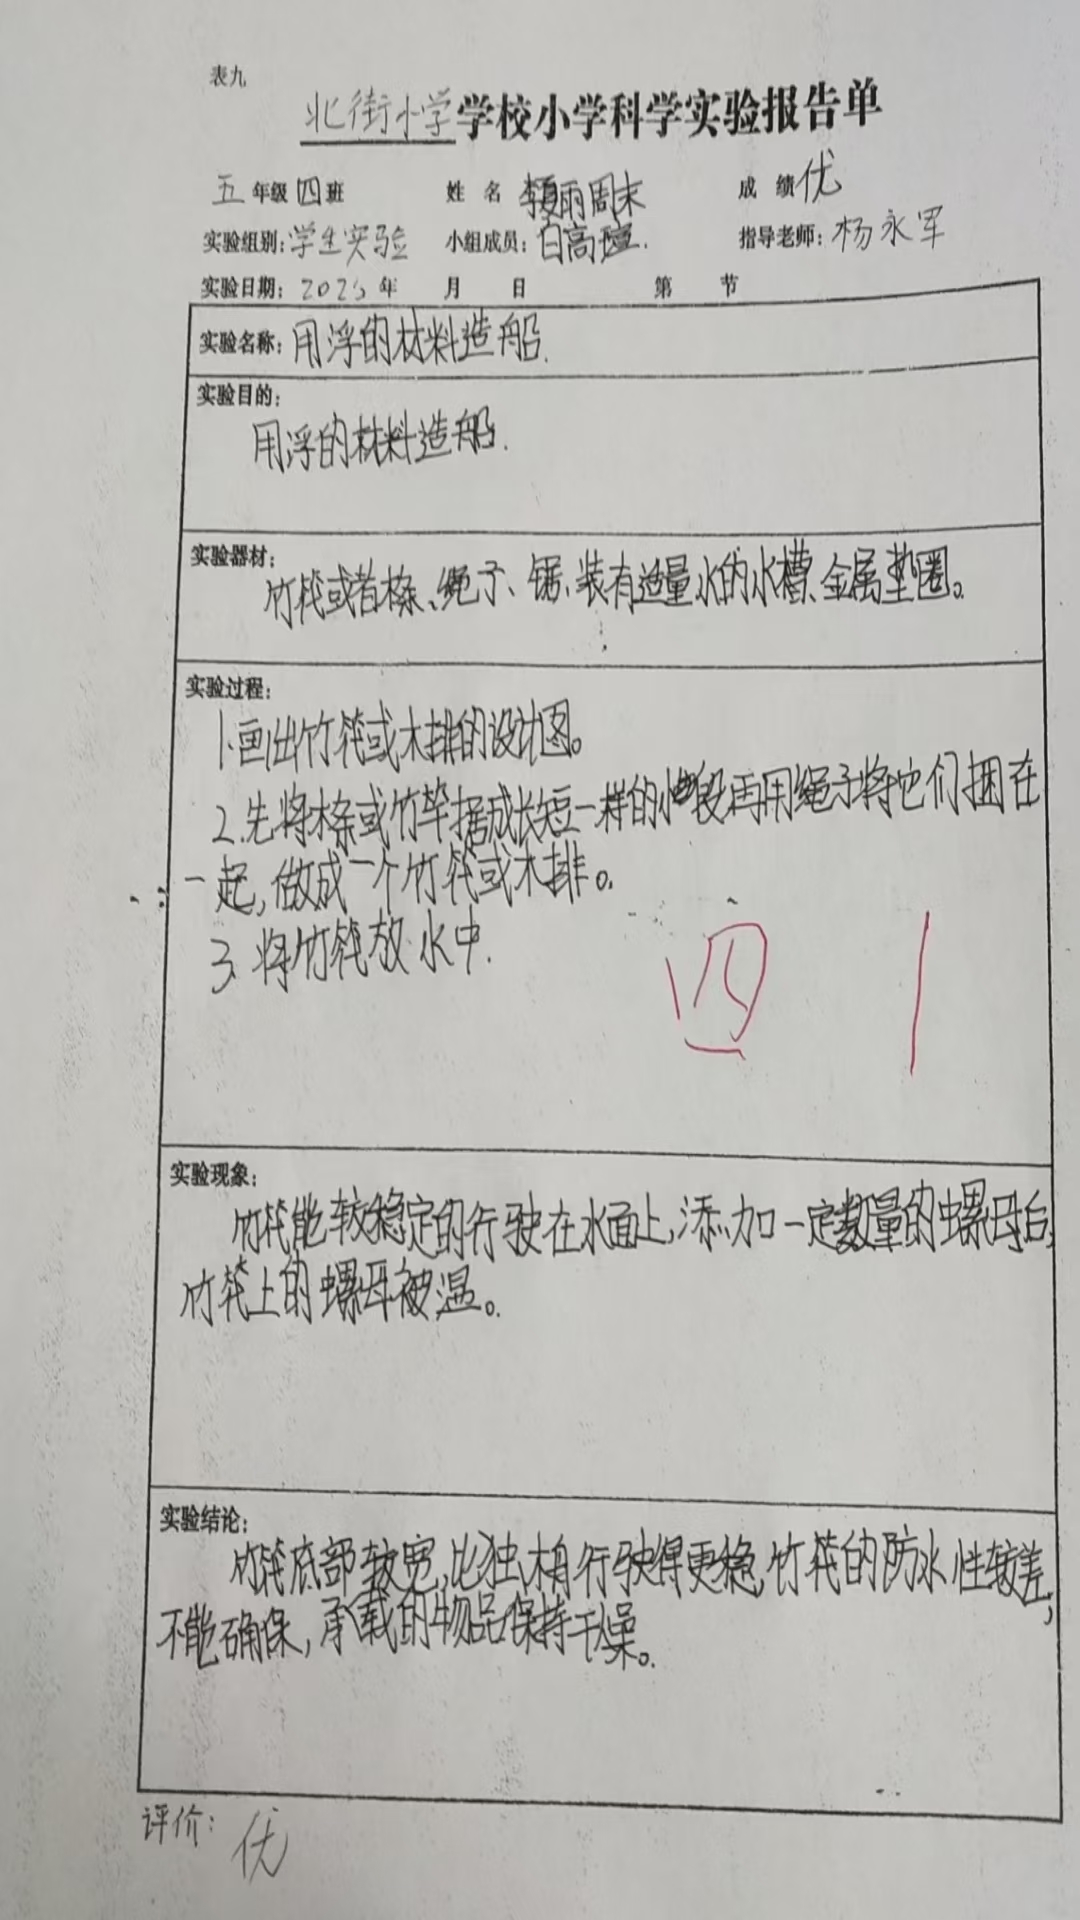 表九
北街小学学校小学科学实验报告单
五年级四班 姓名 周末 成绩 优
实验组别：学生实验 小组成员：白高 指导老师：杨永军
实验日期：2025年 月 日 第 节
实验名称：用浮的材料造船.
实验目的：
用浮的材料造船.
实验器材：
竹筏或者、绳子、锯、装有适量水的水槽、金属垫圈。
实验过程：
1.画出竹筏或木排的设计图。
2.先将木条或竹竿据成长短一样的小段再用绳子将它们捆在
一起，做成一个竹筏或木排。
3.将竹筏放水中.
四 1
实验现象：
竹筏能较稳定的行驶在水面上,添加一定数量的螺母后,
竹筏上的螺母被湿。
实验结论：
竹筏底部较宽,比独木舟行驶得更稳,竹筏的防水性较差,
不能确保,承载的物品保持干燥。
评价：优